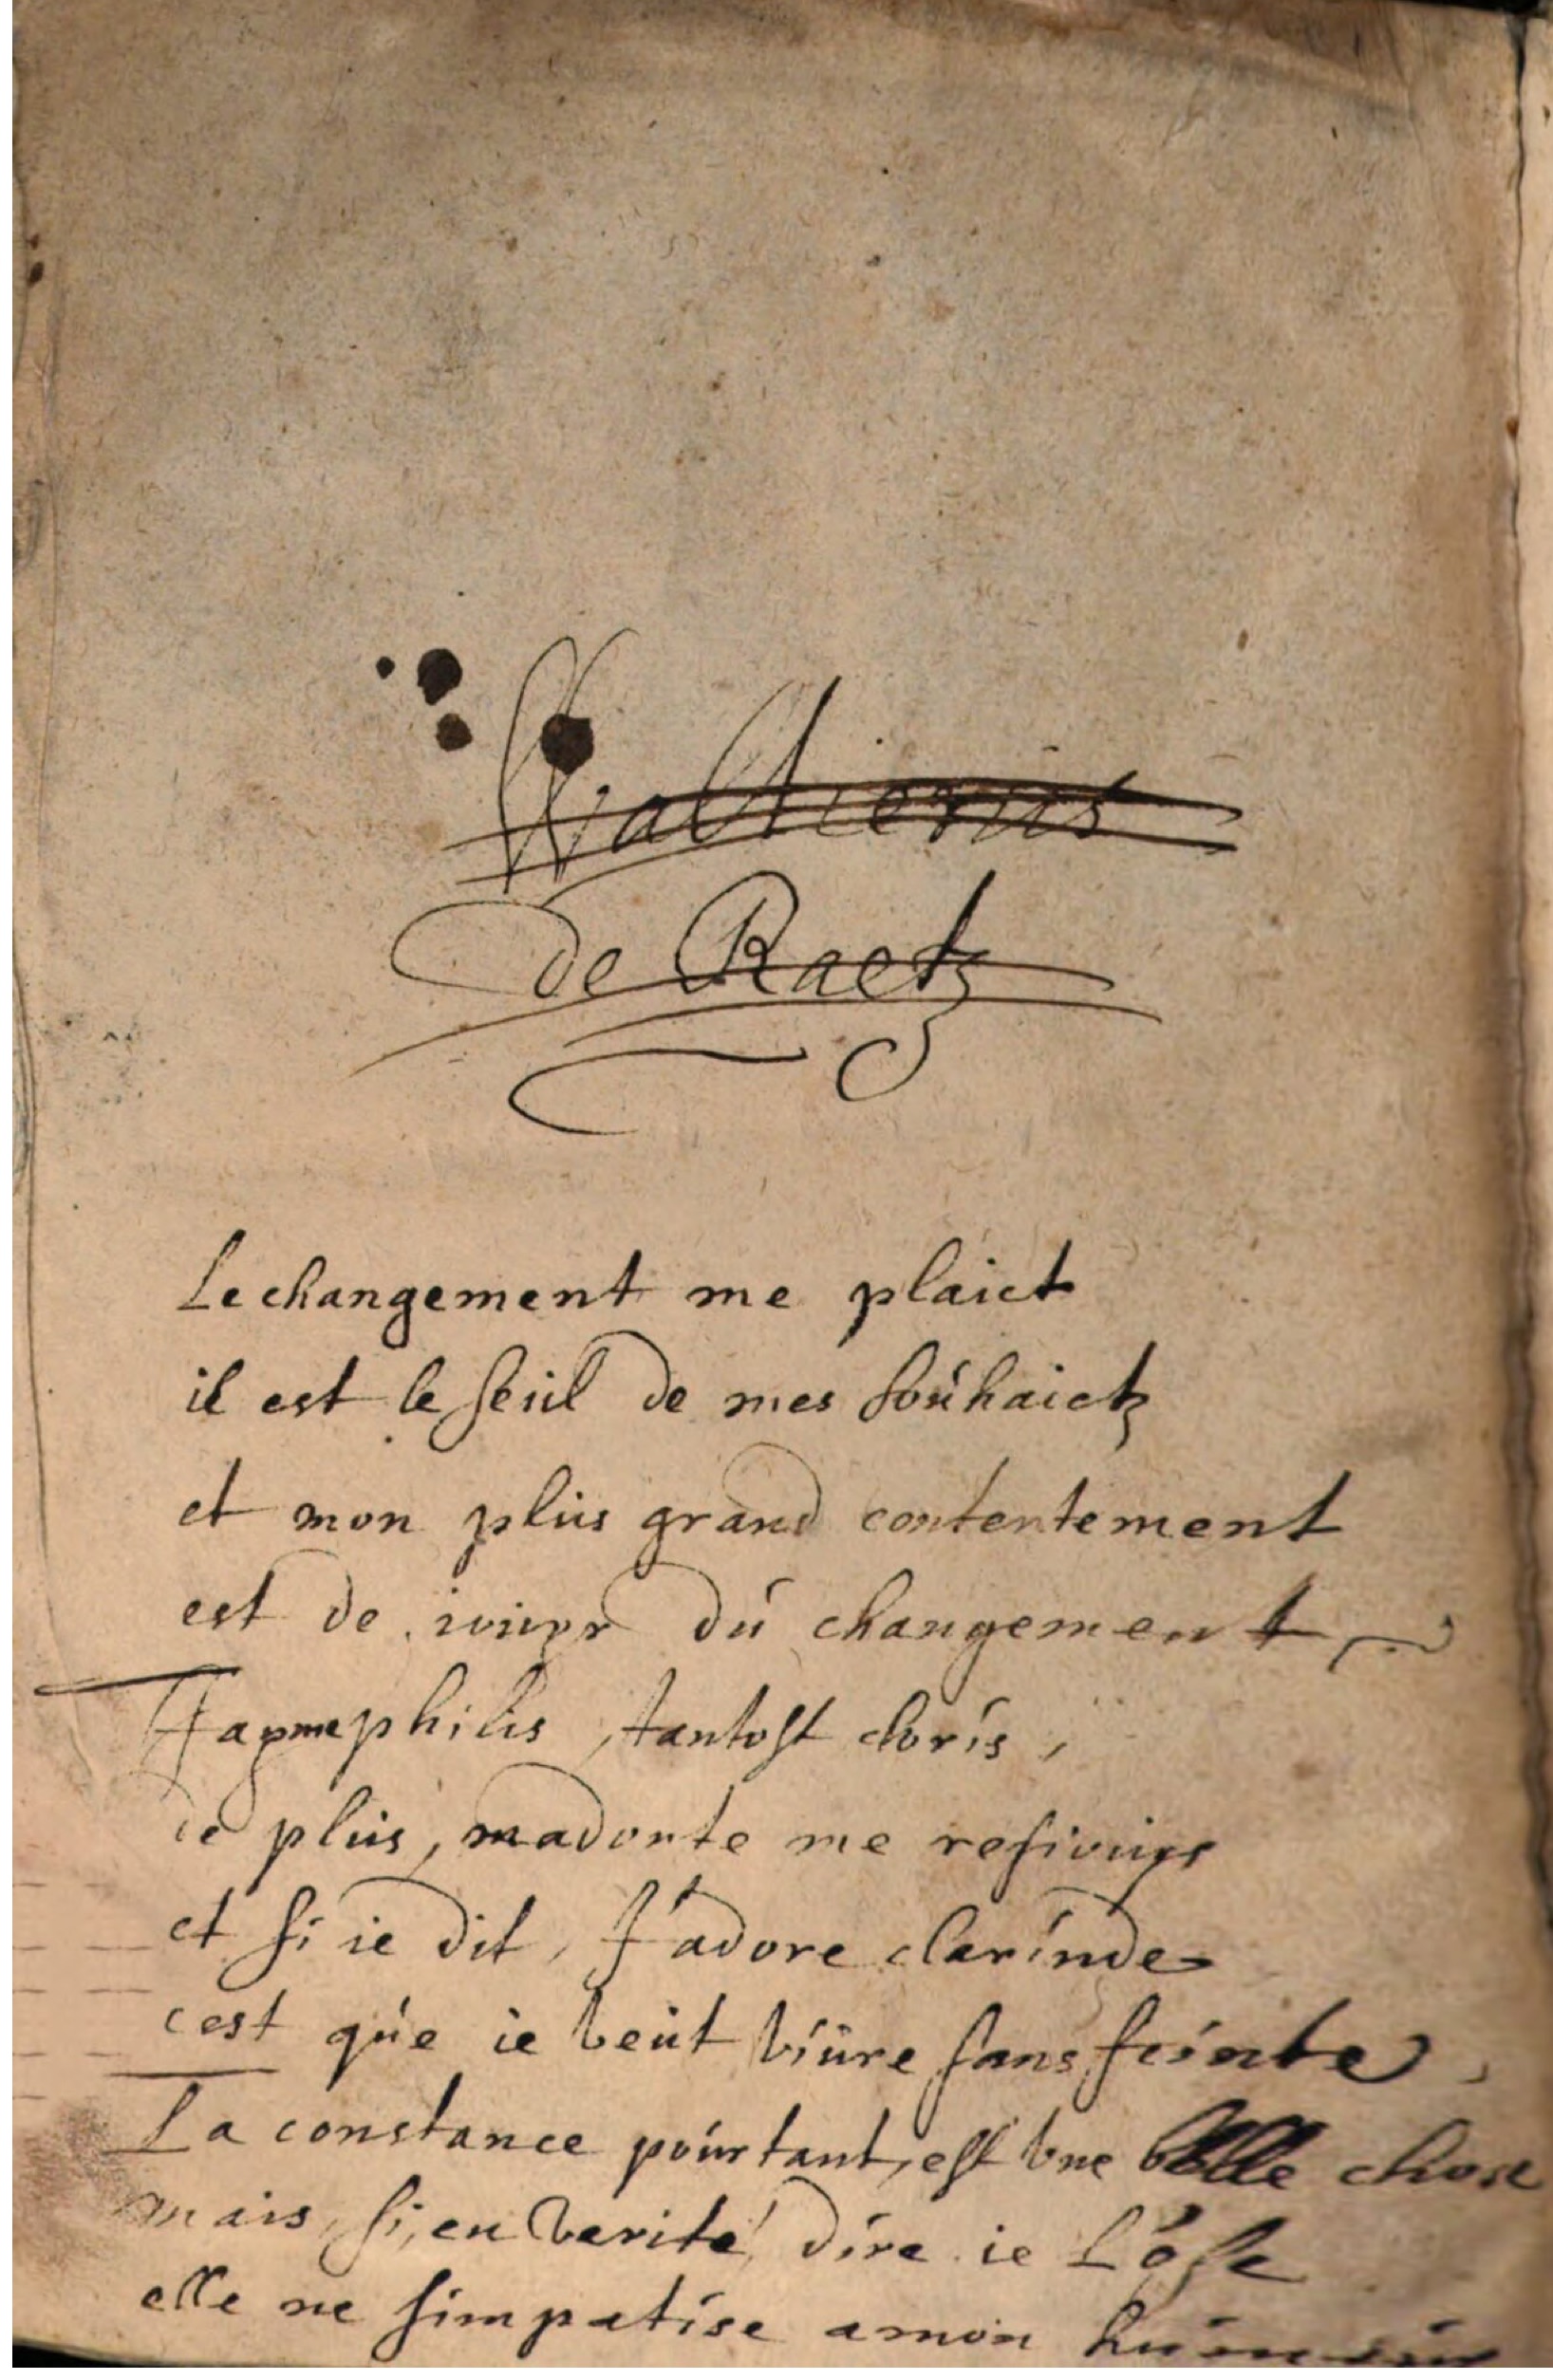 Walthierus
de Raetz
Le changement me plaict
il est le seul de mes souhaictz
et mon plus grand contentement
est de iouyr du changement
J'ayme philis, tantost cloris,
de plus, madonte me resiouys
et si ie dit, J'adore clarinde
cest que ie veut viure sans feinte,
La constance pourtant, est vne belle chose
mais, si, en verité dire ie l'ose
elle ne simpatise a mon humeur